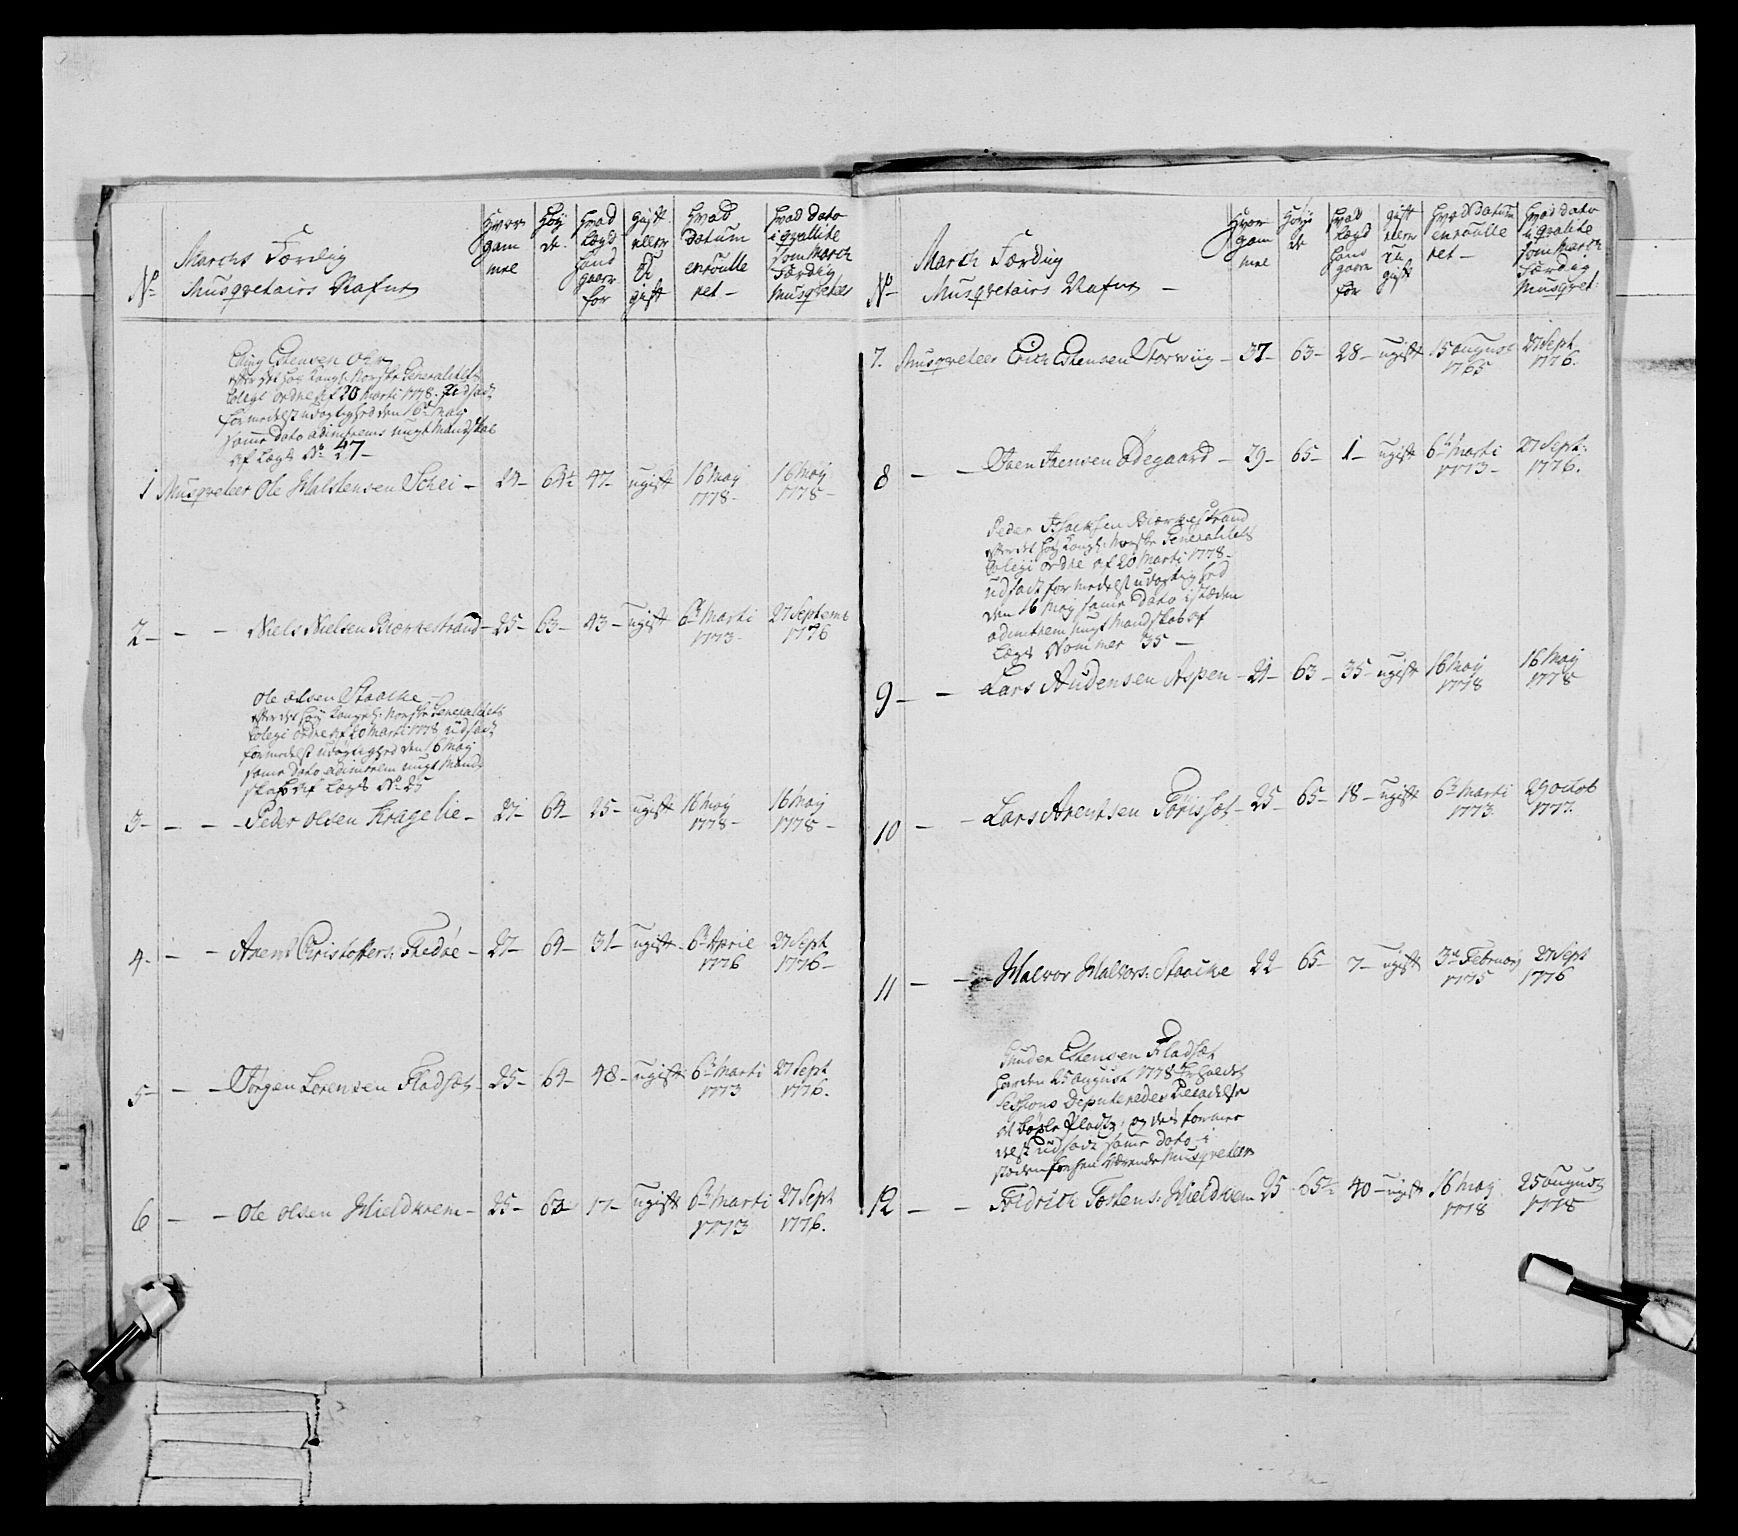 No
Marchs Færdig
Musqvetairs Nafne
Hvor
gam
mel
Höy
de
Hvad
Lægd
Hand
gaaer
for
gift
eller
U
gift
Hvad
Datum
enroulle
ret -
Hvad dato
i qvalite
som March
Færdig
Musqveteer
Elling Estensen
efter det høy Kongl: Norske Generalitets
Colegi ordre af 20 Marti 1778. udsadt
formedelst udøgtighed den 16 Maij
samme dato adimterens nugt Mandskab
af Lægd No 47 -
1 Musqveteer Ole Halstensen Schei - 24 - 64 - 47 - ugift 16 Maij 1778 - 16 Maij 1778 -
2 - - - Niels Nielsen Biørkestrand - 25 - 63 - 43 - ugift 6te Marti 1773 - 27 Septemb 1776
Ole Olsen Staacke
efter det høy Kongel: Norske Generalitets
Colegi ordre af 20 Marti 1778 udsadt
formedelst udøgtighed den 16 Maij
samme dato adimterem nugt Mand
skab af Lægd No 25
3 - - - Peder Olsen Kragelie - 21 - 64 - 25 - ugift 16 Maij 1778 - 16 Maij 1778 -
4 - - - Arent Christophers: Fredøe - 27 - 64 - 31 - ugift - 6te Aprie 1776 27 Sept 1776 -
5 - - - Jörgen Lorensen Fladsæt - 25 - 64 - 48 - ugift 6te Marti 1773 27 Sept 1776.
6 - - - Ole Olsen Mieldkrem - 25 - 64 - 17 - ugift 6te Marti 1773 27 Sept 1776.
No
March Færdig
Musqvetairs Nafne -
Hvor
gam
mel
Höy
de
Hvad
Lægd
Hand
gaaer
for
gift
eller
U
gift
Hvad Datum
enroulle
ret -
Hvad dato
i qvalite
som March
Færdig
Musqvet:
7. Musqveteer Erich Estensen Storwiig - 37 - 63 - 28 - ugift 15 August 1765 27 Sept 1776.
8 - - Iven Ivensen Ödegaard - 29 - 65 - 1 - ugift 6te Marti 1773 - 27 Sept: 1776.
Peder Isacksen Biørkestrand
efter det høy Kongl: Norske Generalitets
Colegi ordre af 20 Marti 1778
udsadt formedelst udøgtighed
den 16 Maij samme Dato i stæden
adimtrem nugt Mandskab af
Lægd Nommer 35 -
9 - - Lars Knudensen Aspen - 21 - 63 - 35 - ugift 16 Maij 1778 16 Maij 1778
10 - - Lars Arentsen Torisset - 25 - 65 - 18 - ugift 6te Marti 1773 29 octob 1777.
11 - - Halvor Halvors: Staacke 22 - 65 - 7 - ugift 3de Februarij 1775 27 Sept 1776
Knuder Estensen Fladsæt
har den 25 August 1778 Erholdet
Sessions Deputeredes Tilladelse
at Boxle Pladtz, og der formee
delst udsadt samme dato i
stæden forhen værende Musqveteer
12 - - Fredrich Tostens: Mieldkrem 25 - 65 - 40 - ugift 16 Maij 1778 25 August 1778